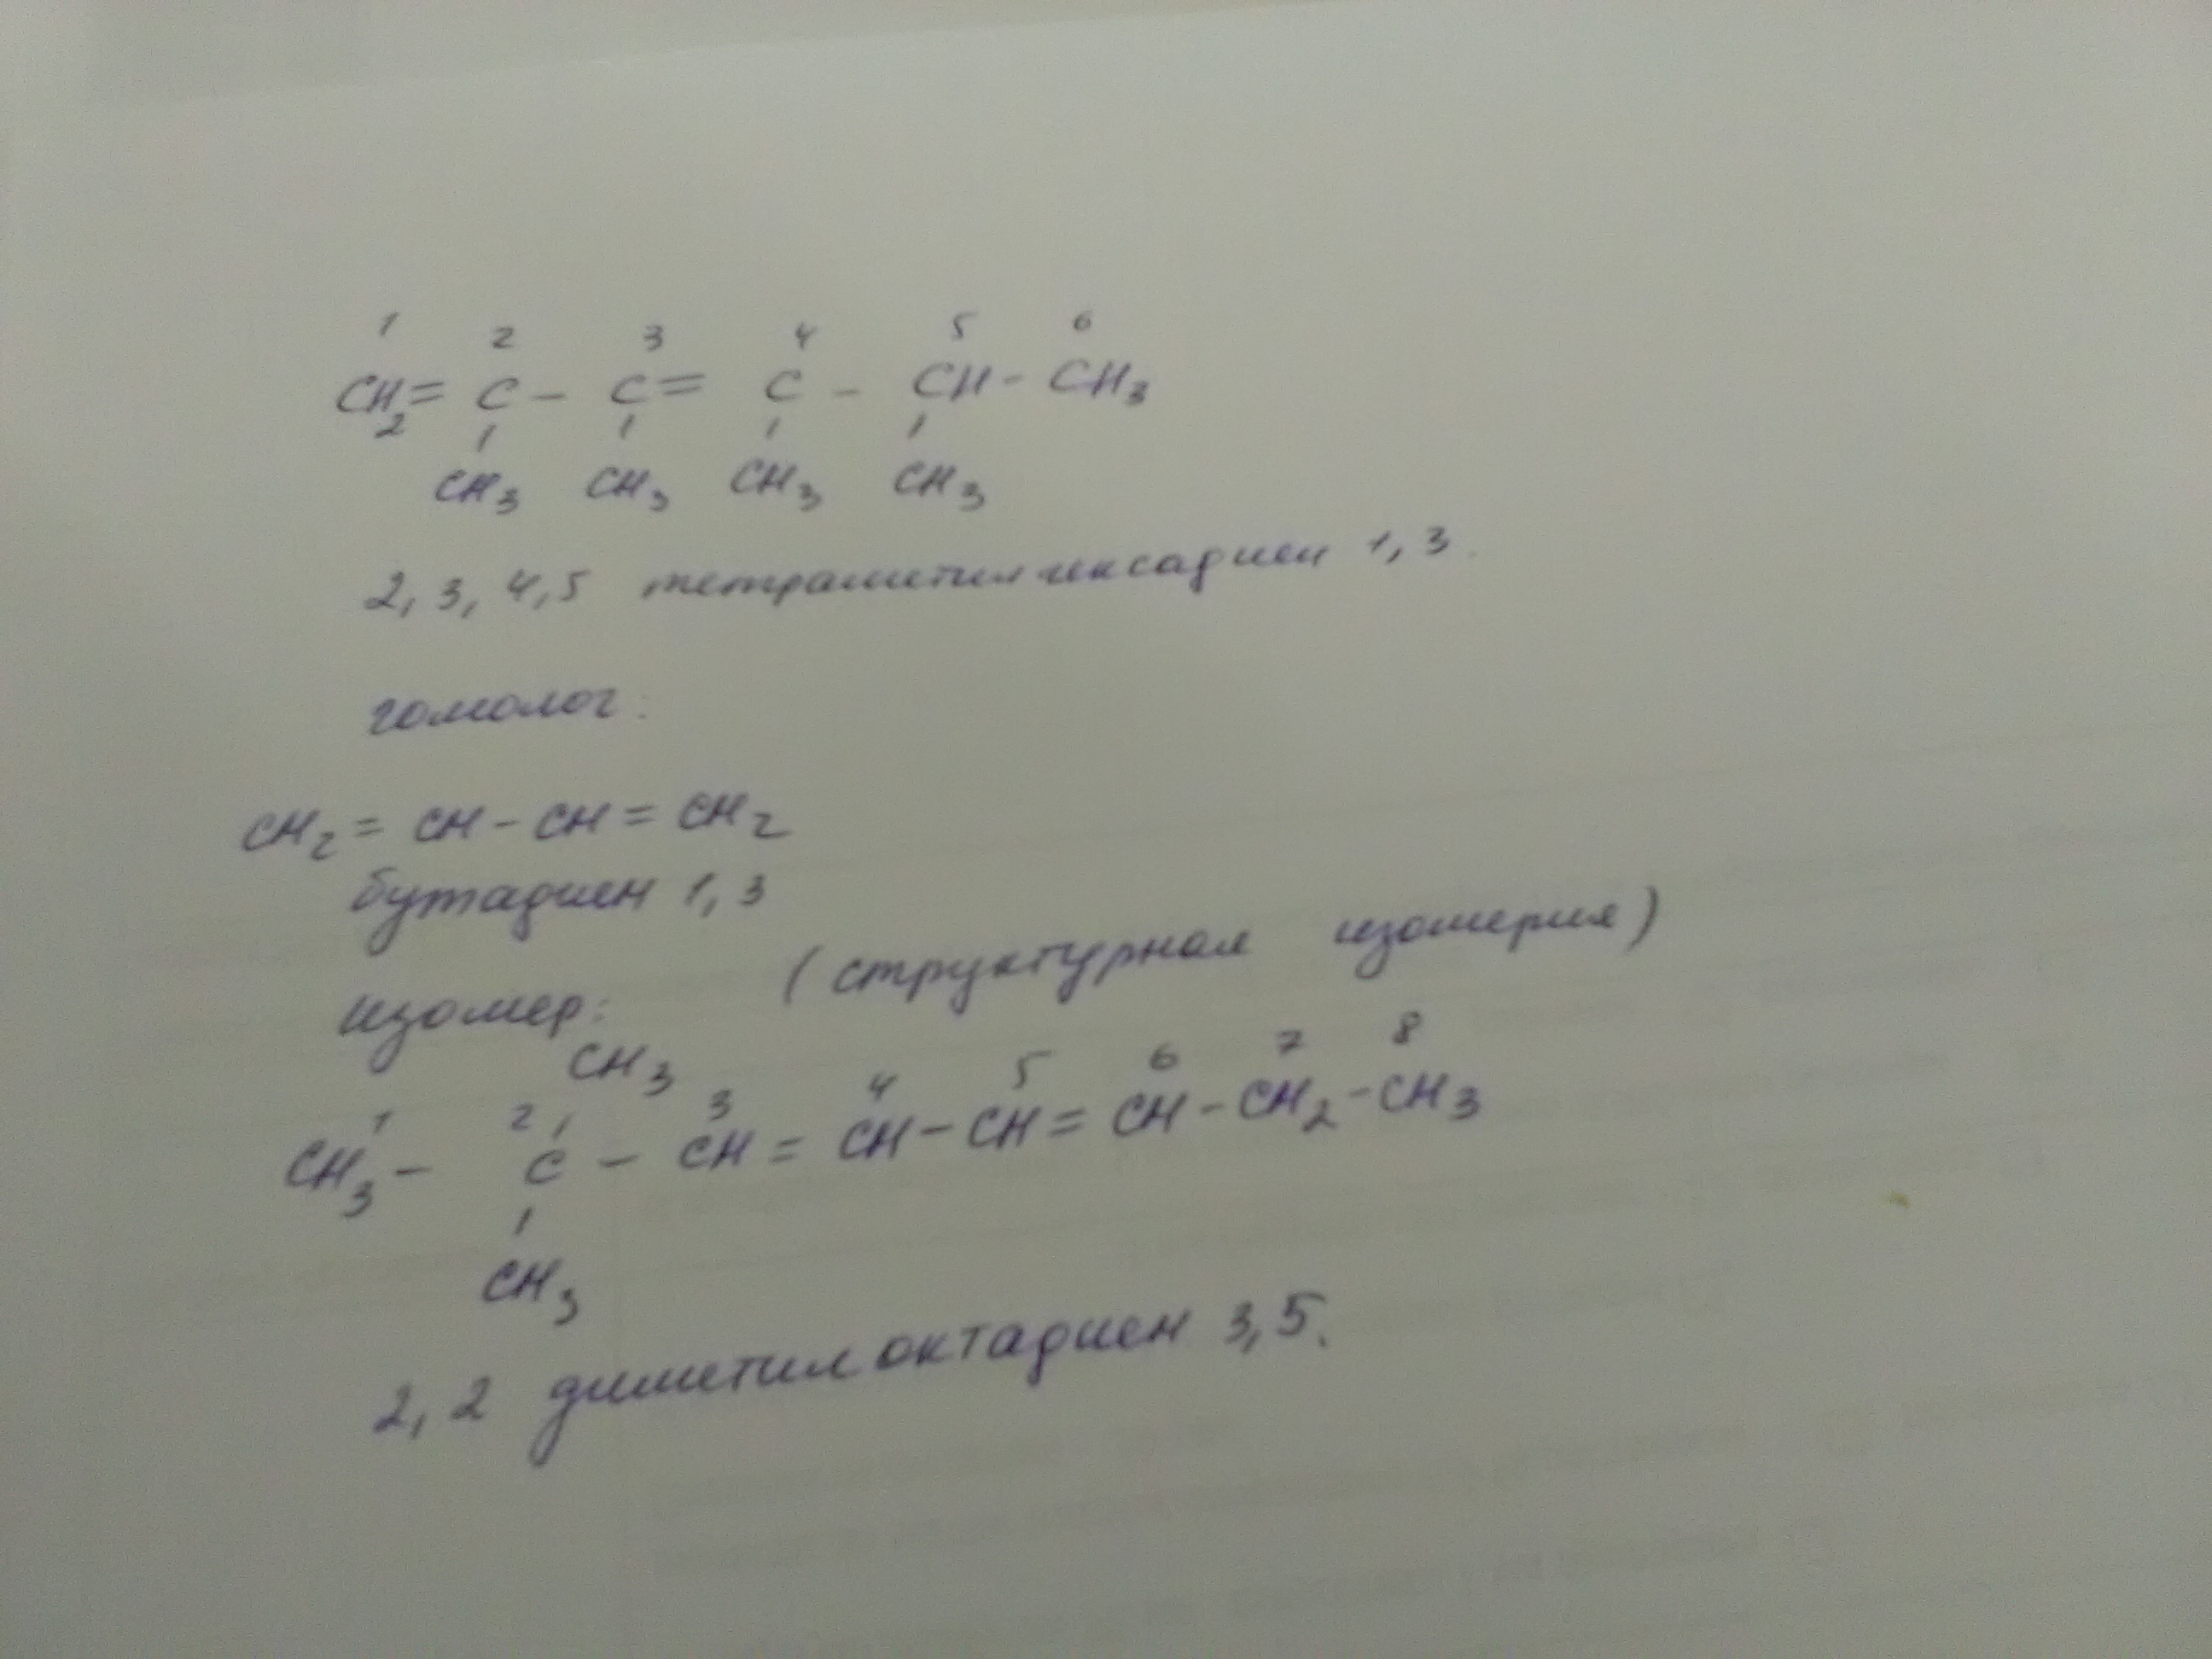 1 2 3 4 5 6
CH2 = C - C = C - CH - CH3
CH3 CH3 CH3 CH3
2, 3, 4, 5 тетраметилгексадиен 1, 3.
гомолог:
CH2 = CH - CH = CH2
бутадиен 1, 3
изомер: (структурная изомерия)
CH3
1 2 3 4 5 6 7 8
CH3 - C - CH = CH - CH = CH - CH2 - CH3
CH3
2, 2 диметилоктадиен 3, 5.